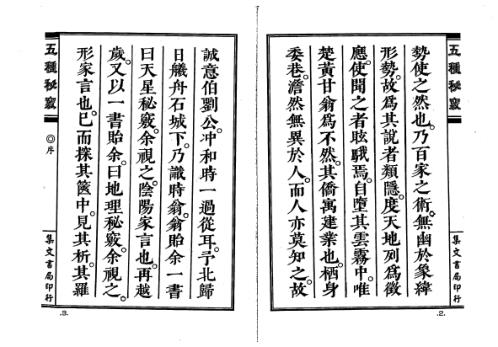 五種秘竅
勢使之然也。乃百家之術。無幽於象緯
形勢。故爲其說者類隱。度天地列爲徵
應。使聞之者眩焉。自墮其雲霧中。唯
楚黃甘翁爲不然。其僑寓建業也。栖身
委巷。澹然無異於人。而人亦莫知之。故
集文書局印行
.2.
誠意伯劉公。冲和時一過從耳。予北歸
日艤舟石城下。乃識時翁。翁貽余一書
曰天星秘竅。余視之。陰陽家言也。再越
歲。又以一書貽余。曰地理秘竅。余視之。
形家言也。已而探其篋中。見其析。其羅
五種秘竅
◎序
集文書局印行
.3.